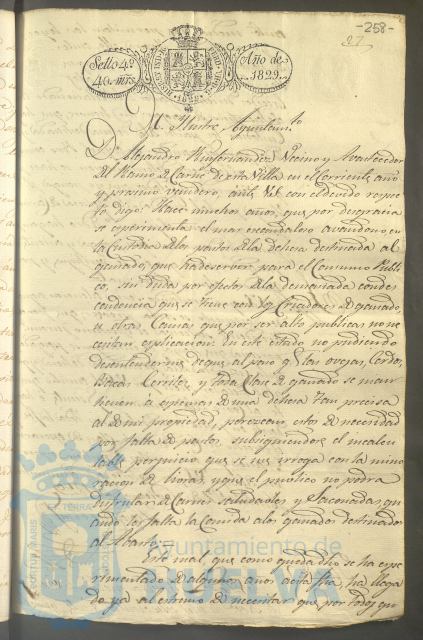 -258-
27
Sello 4º
40 mrs.
Año de
1829.
M. Ilustre Ayuntam.to
D.n Alejandro Ruifernandez Vecino y Abastecedor
del Ramo de Carne de esta Villa en el Corriente año
y procsimo venidero, ante V.S. con el devido respe
to digo: Hace muchos años, que por desgracia
se esperimenta el mas escandaloso avandono, en
la Custodia de los pastos de la dehesa destinada al
ganado, que ha de servir para el Consumo Publi
co, sin duda por efecto de la demasiada condes
cendencia que se tiene con los Criadores de ganado
u otras Causas que por ser alto publicas no ne
cesitan esplicacion. En este estado no pudiendo
desentenderme de que al paso q.e las ovejas, Cerdos,
Bacas Cerriles, y toda Clase de ganado se man
tienen a espensas de una dehesa tan precisa
al de mi propiedad, perezcan estos de necesidad
por falta de pastos, subsiguiendose el incalcu
lable perjuicio que se nos irroga con la mino
racion de libras, y que el publico no podra
disfrutar de Carnes saludables y Sazonadas, qu
ando les falta la Comida a los ganados destinados
al Abasto.
Este mal, que como queda dho se ha espe
rimentado de algunos años a esta fha, ha llega
do ya al estremo de necesitar que por todos qu
Ayuntamiento de
HUELVA